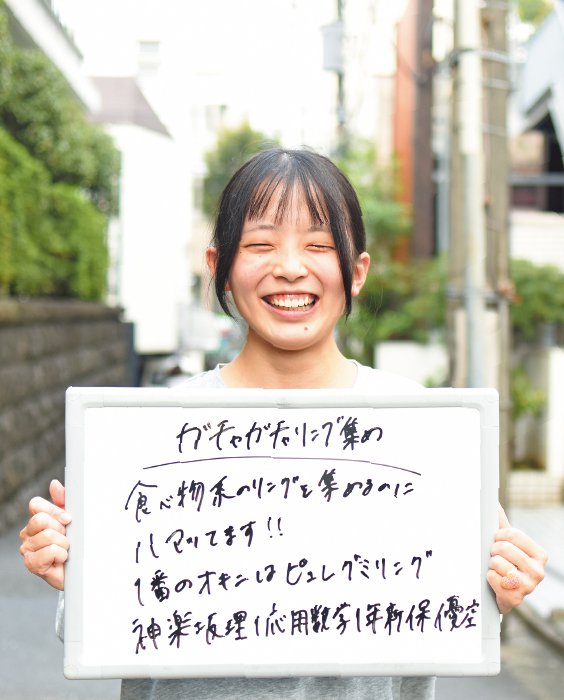 ガチャガチャリング集め
食べ物系のリングを集めるのに
ハマッてます!!
1番のオキニはピュレグミリング
神楽坂 理1応用数学1年 新保優空